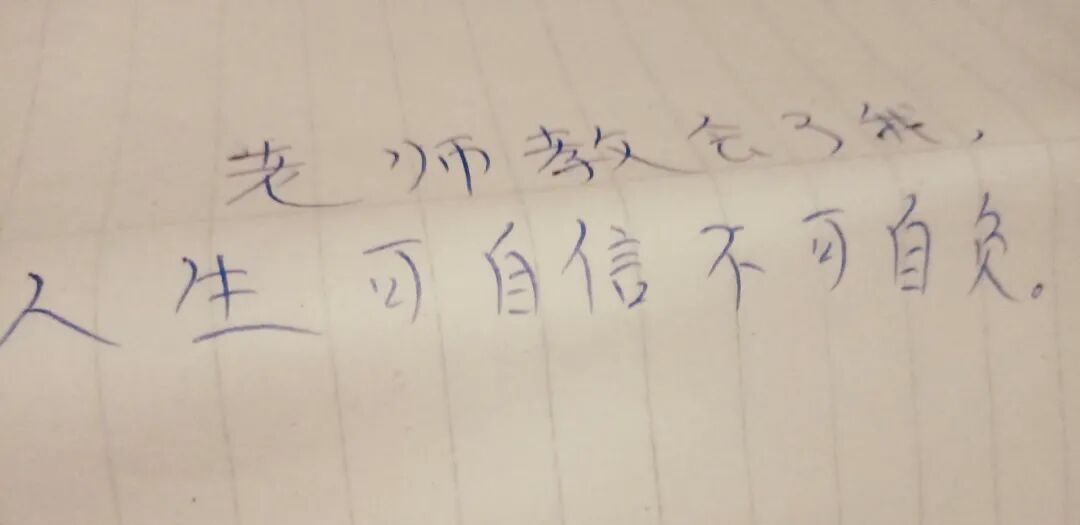 老师教会了我，
人生可自信不可自负。